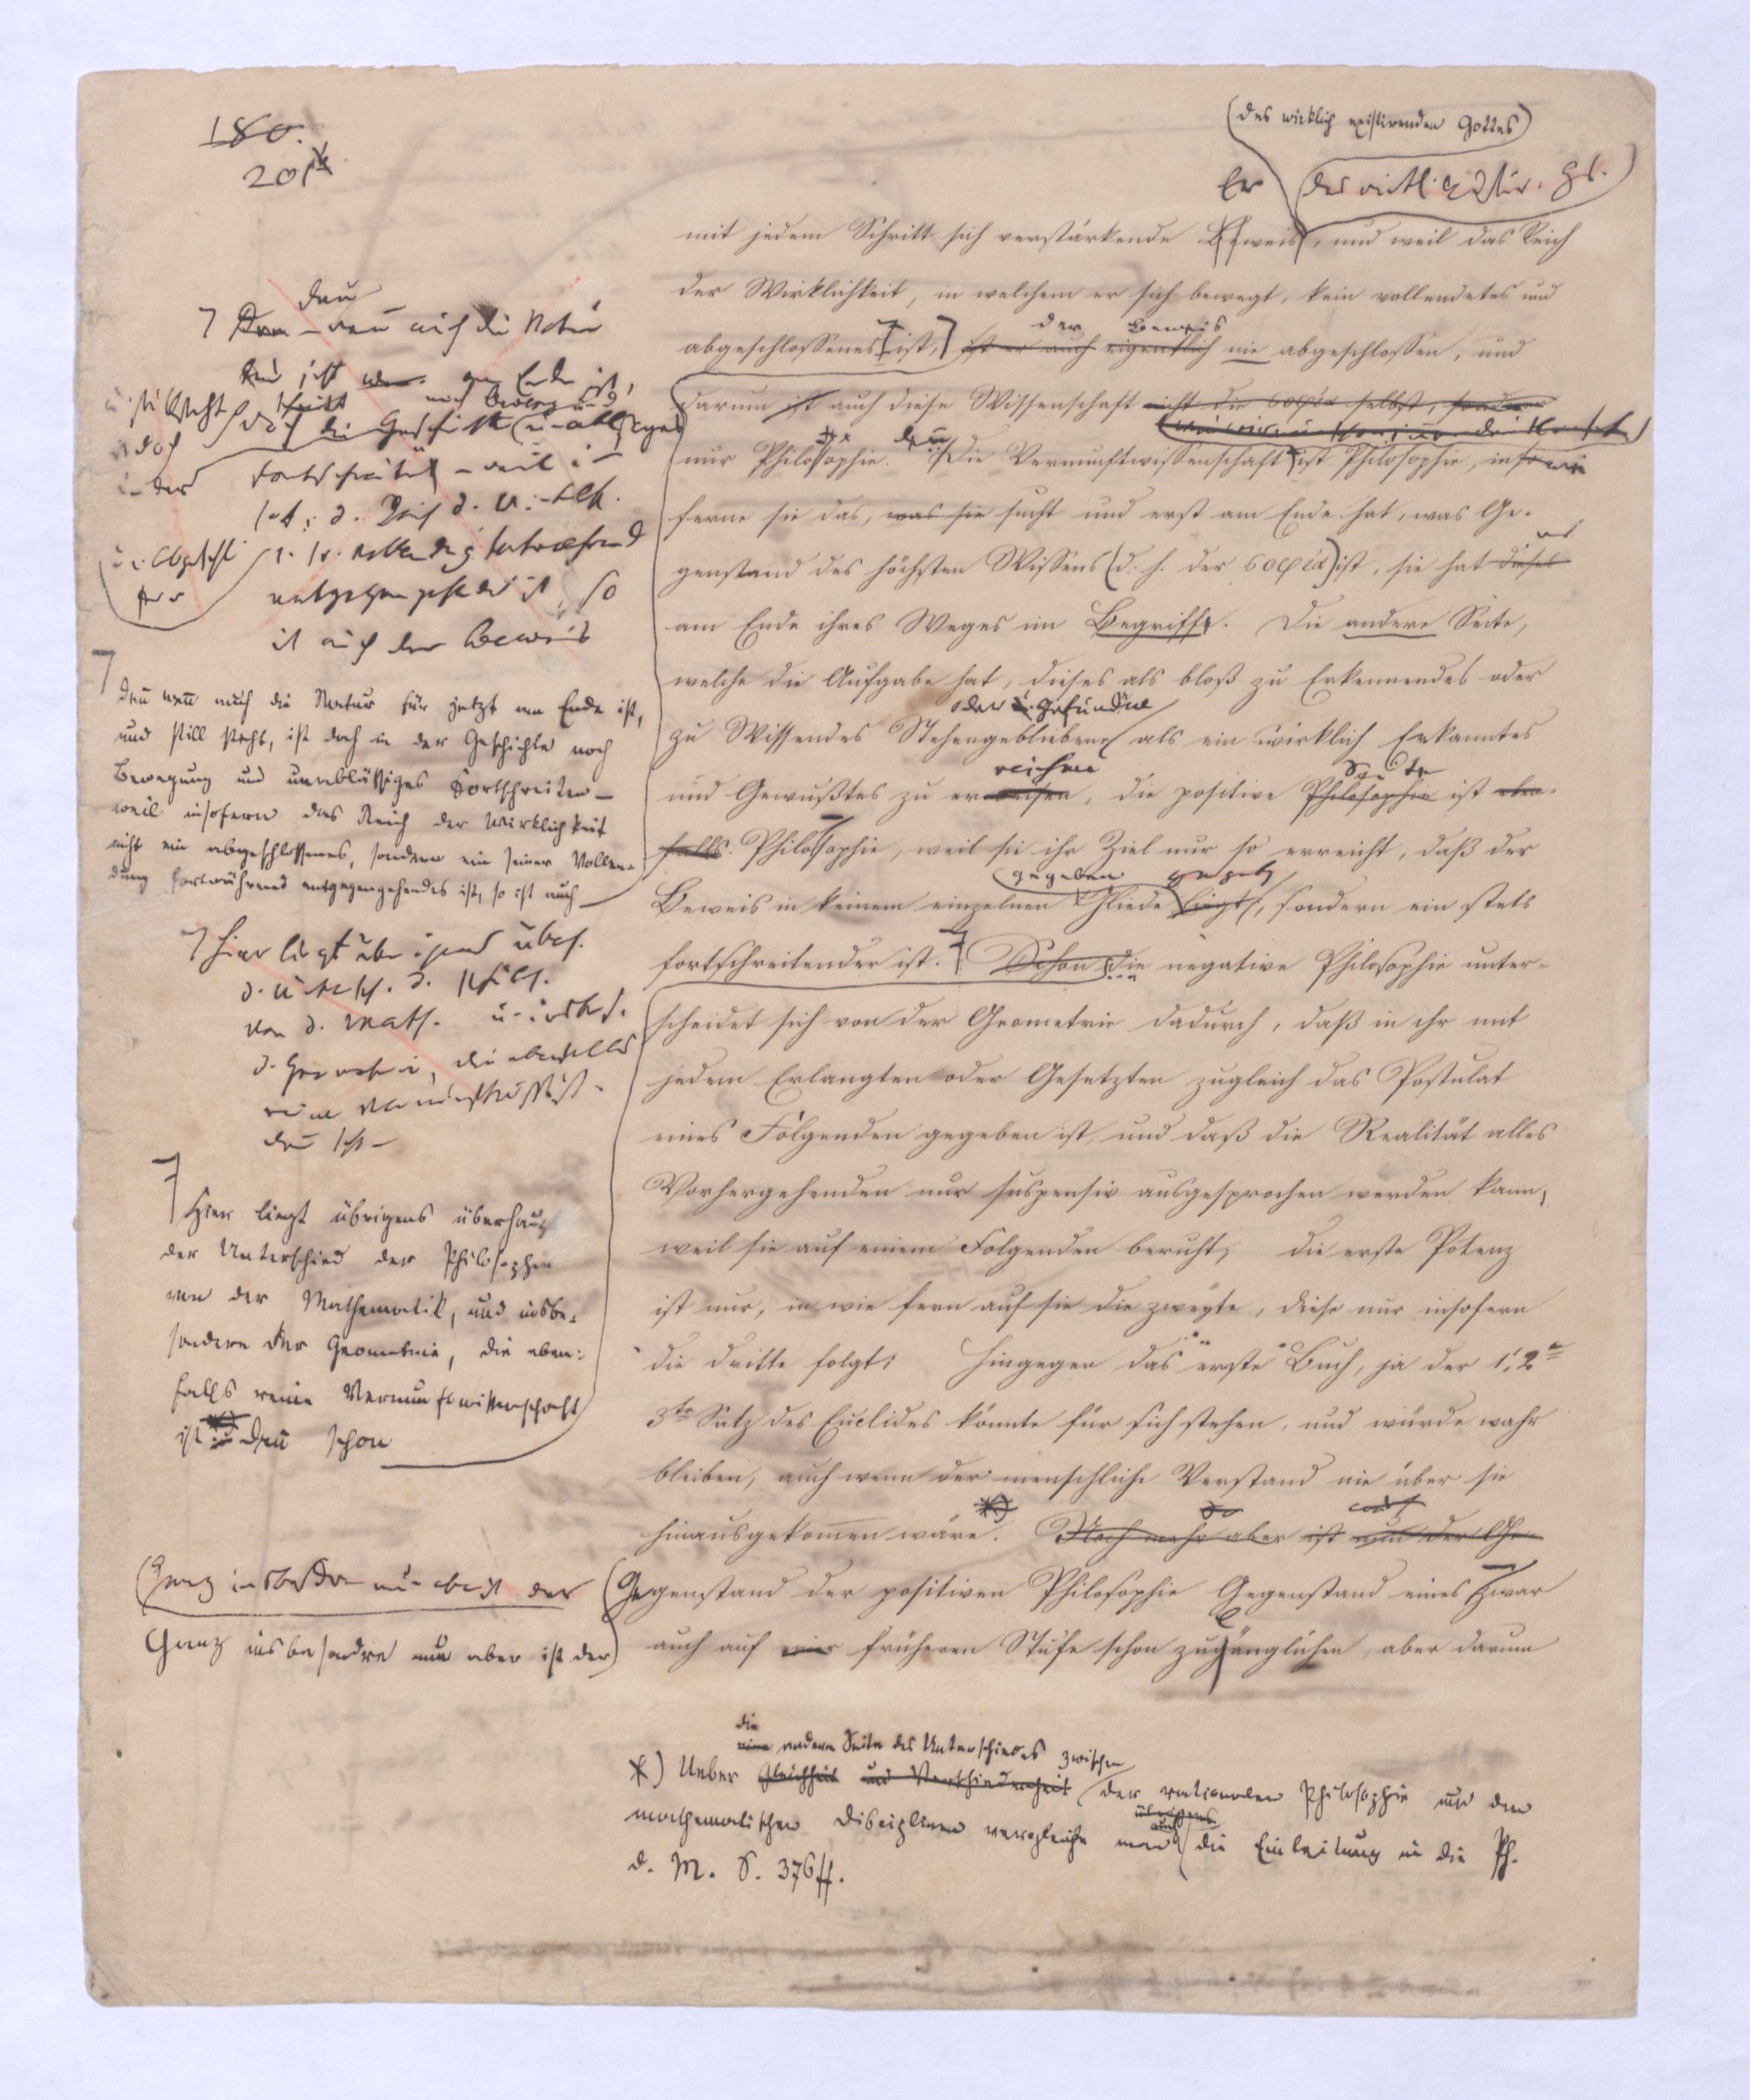 180.
201
(des wirklich existirenden Gottes)
Er (des wirkl. existir. G.
mit jedem Schritt sich verstärkende Erweis, und weil das Reich
der Wirklichkeit, in welchem er sich bewegt, kein vollendetes und
der Beweis
abgeschlossenes ist, ist er auch eigentlich nie abgeschlossen, und
darum ist auch diese Wissenschaft nicht die σοφία selbst, sondern
nur Philosophie. Die Vernunftwissenschaft ist Philosophie, inso
ferne sie das, was sie sucht und erst am Ende hat, was Ge-
genstand des höchsten Wissens (d. h. der σοφία) ist, sie hat dieses
am Ende ihres Weges im Begriffe. Die andere Seite,
welche die Aufgabe hat, dieses als bloß zu Erkennendes oder
oder Gefundne
zu Wissendes Stehengebliebene als ein wirklich Erkanntes
reichen Seite
und Gewußtes zu erweisen, die positive Philosophie ist eben-
falls Philosophie, weil sie ihr Ziel nur so erreicht, daß der
gegeben
Beweis in keinem einzelnen Gliede liegt, sondern ein stets
fortschreitender ist. Schon die negative Philosophie unter-
scheidet sich von der Geometrie dadurch, daß in ihr mit
jedem Erlangten oder Gesetzten zugleich das Postulat
eines Folgenden gegeben ist, und daß die Realität alles
Vorhergehenden nur suspensiv ausgesprochen werden kann,
weil sie auf einem Folgenden beruht; die erste Potenz
ist nur, in wie fern auf sie die zweyte, diese nur insofern
die dritte folgt; hingegen das erste Buch, ja der 1. 2te
3te Satz des Euclides könnte für sich stehen, und würde wahr
bleiben, auch wenn der menschliche Verstand nie über sie
hinausgekommen wäre. *) Noch mehr aber ist nun der Ge-
Gegenstand der positiven Philosophie Gegenstand eines zwar
auch auf einer früheren Stufe schon zugänglichen, aber darum
denn
Denn – wenn auch die Natur
für jetzt am Ende ist,
doch die Geschichte
Fortschreiten – weil
entgegengehendes ist, so
ist auch der Beweis
Denn wenn auch die Natur für jetzt am Ende ist,
und still steht, ist doch in der Geschichte noch
Bewegung und unablässiges Fortschreiten –
weil insofern das Reich der Wirklichkeit
nicht ein abgeschlossenes, sondern ein seiner Vollen-
dung fortwährend entgegengehendes ist, so ist auch
hier liegt überh.
d. Untersch. d. Philos.
von d. Math. u. insbes.
d. Geometrie, die ebenfalls
reine
denn schon
Hier liegt übrigens überhaupt
der Unterschied der Philosophie
von der Mathematik, und insbe-
sondere der Geometrie, die eben-
falls reine Vernunftwissenschaft
ist denn schon
(Ganz insbesondre nun aber ist der
Ganz insbesondre nun aber ist der)
die
eine andere Seite des Unterschiedes zwischen
*) Ueber Gleichheit und Verschiedenheit der rationalen Philosophie und den
übrigens
auch
mathematischen Disciplinen vergleiche man die Einleitung in die Ph.
d. M. S. 376 ff.